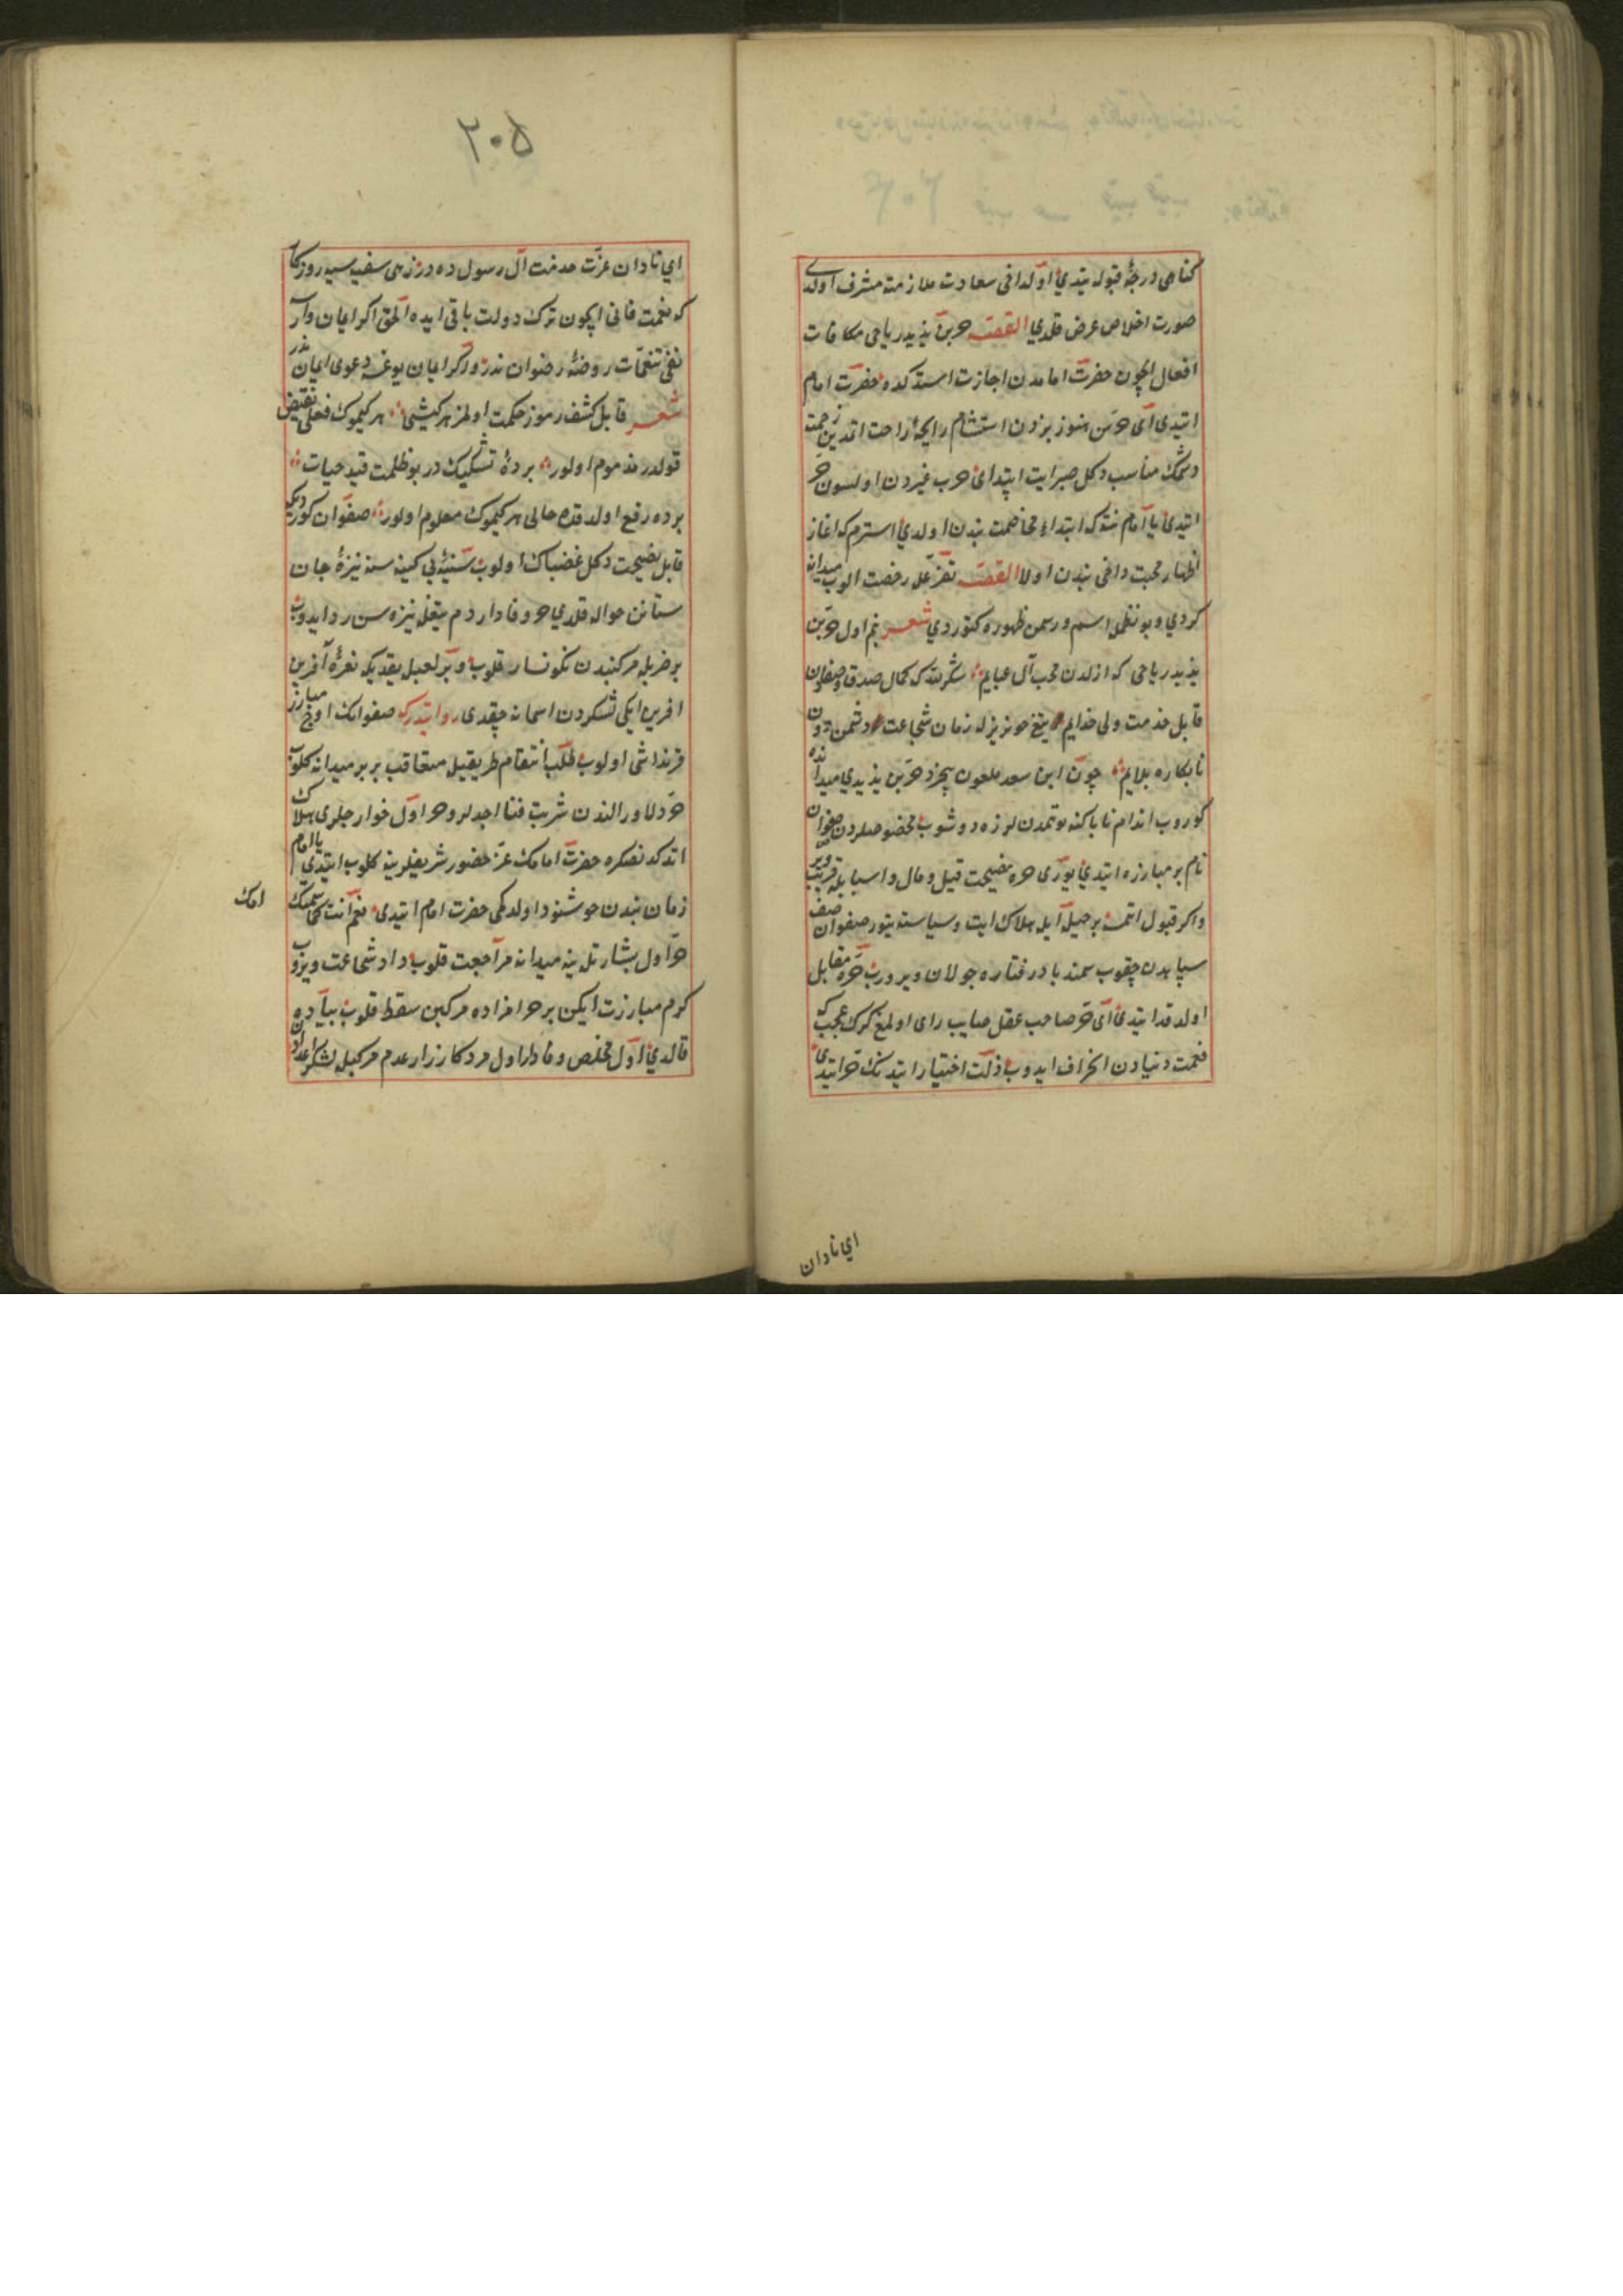 كناهی درجهٔ قبوله یتدی اول داخی سعادت ملازمته مشرف اولدی
صورت اخلاص عرض قلدی القصه حر بن یزید ریاحی مکافات
افعال ایچون حضرت امامدن اجازت استدکده حضرت امام
ایتدی ای حر سن هنوز بزدن استشمام رایحهٔ راحت اتمدین زحمت
وشمك مناسب دکل صبر ایت ابتدای حرب غیردن اولسون حر
ایتدی یا امام نته که ابتداء مخاصمت بندن اولدی استرم که اغاز
اظهار محبت داخی بندن اولا القصه تضرعله رخصت الوب میدانه
کردی و بو نظمله اسم و رسمن ظهوره کتوردی شعر بنم اول حر بن
یزید ریاحی که ازلدن محب آل عبایم شکر لله که کمال صدق و صفادن
قابل خدمت ولی خدایم تیغ خونریزله زمان شجاعت دشمن دون
نابکاره بلایم چون ابن سعد ملعون بیخرد حر بن یزیدی میدانده
کوروب اندام ناپاکنه بو تمدن لرزه دوشوب مخصوصلردن صفوان
نام بر مبارزه ایتدی یوری حره نصیحت قیل و مال و اسبابله فریب ویر
واکر قبول اتمسه بر حیله ایله هلاك ایت و سیاسته یتور صفوان صف
سپاهدن چقوب سمند باد رفتاره جولان ویردرب حره مقابل
اولدقدا ایتدی ای حر صاحب عقل صایب رای اولمغ کرك عجب که
نعمت دنیادن انحراف ایدوب ذلت اختیار ایتدنك حر ایتدی
ای نادان
٢٠٥
ای نادان عزت خدمت آل رسول ده در زهی سفیه سیه روزکار
که نعمت فانی ایچون ترك دولت باقی ایده الحق اکر ایمان وار
نفی تنعمات روضهٔ رضوان ندر و اکر ایمان یوغسه دعوی ایمان ندر
شعر قابل کشف رموز حکمت اولمز هر کیشی هر کیموك فعلی نقیض
قولدر مذموم اولور پردهٔ تشکیك در بو ظلمت قید حیات
پرده رفع اولدقده حالی هر کیموك معلوم اولور صفوان کوردی که
قابل نصیحت دکل غضبناك اولوب سینهٔ بی کینه سنه نیزهٔ جان
ستانن حواله قلدی حر وفادار دم تیغله نیزه سن رد ایدوب
بر ضربله مرکبندن نکونسار قلوب و بر لعبله یقدیکه نعرهٔ آفرین
افرین ایکی لشکردن اسمانه چقدی روایتدرکه صفوانك اوچ مبارز
قرنداشی اولوب طلب انتقام طریقیله متعاقب بربر میدانه کلوب
حر دلاور الندن شربت فنا اجدلر و حر اول خوارجلری هلاك
اتدکدنصکره حضرت امامك عز حضور شریفلرینه کلوب ایتدی یا امام
زمان بندن خوشنود اولدکمی حضرت امام ایتدی نعم انت حر کما سمتك
امك
حر اول بشارتله ینه میدانه مراجعت قلوب داد شجاعت ویروب
کرم مبارزت ایکن بر حرامزاده مرکبن سقط قلوب پیاده
قالدی اول مخلص وفادار اول مرد کارزار عدم مرکبله لشکر اعدادن